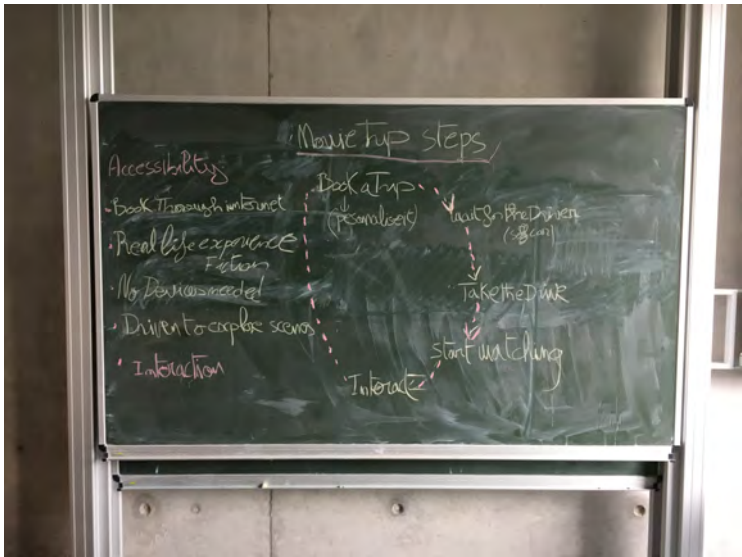 Movie Trip steps
Accessibility
- Book Thorough internet
- Real Life experience
Fiction
- No Devices needed
- Driven to explore scenes
- Interaction
Book a Trip
(pesonalisert)
wait for the Driver
(self car)
Take the Drive
Start watching
Interact